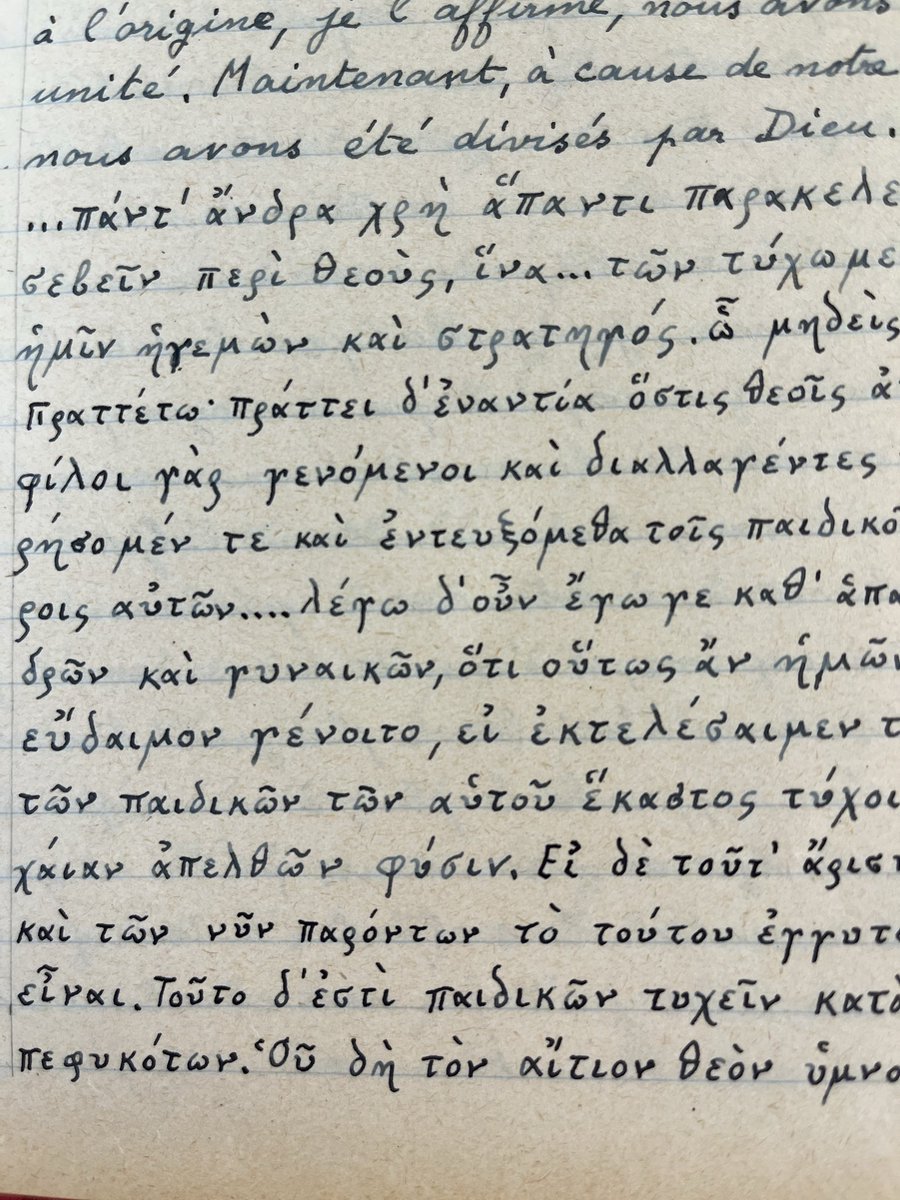 à l'origine, je l'affirme, nous avons
unité. Maintenant, à cause de notre
nous avons été divisés par Dieu.
...πάντ' ἄνδρα χρὴ ἅπαντι παρακελε
σεβεῖν περὶ θεοὺς, ἵνα... τῶν τύχωμε
ἡμῖν ἡγεμὼν καὶ στρατηγός. ᾧ μηδεὶς
πραττέτω· πράττει δ'ἐναντία ὅστις θεοῖς ἀ
φίλοι γὰρ γενόμενοι καὶ διαλλαγέντες
ρήσομέν τε καὶ ἐντευξόμεθα τοῖς παιδικο
ροις αὐτῶν.... λέγω δ'οὖν ἔγωγε καθ' ἁπα
δρῶν καὶ γυναικῶν, ὅτι οὕτως ἂν ἡμῶν
εὔδαιμον γένοιτο, εἰ ἐκτελέσαιμεν τ
τῶν παιδικῶν τῶν αὑτοῦ ἕκαστος τύχοι
χάιαν ἀπελθὼν φύσιν. Εἰ δὲ τοῦτ' ἄριστ
καὶ τῶν νῦν παρόντων τὸ τούτου ἐγγυτ
εἶναι. Τοῦτο δ'ἐστὶ παιδικῶν τυχεῖν κατὰ
πεφυκότων. Οὗ δὴ τὸν αἴτιον θεὸν ὑμνο